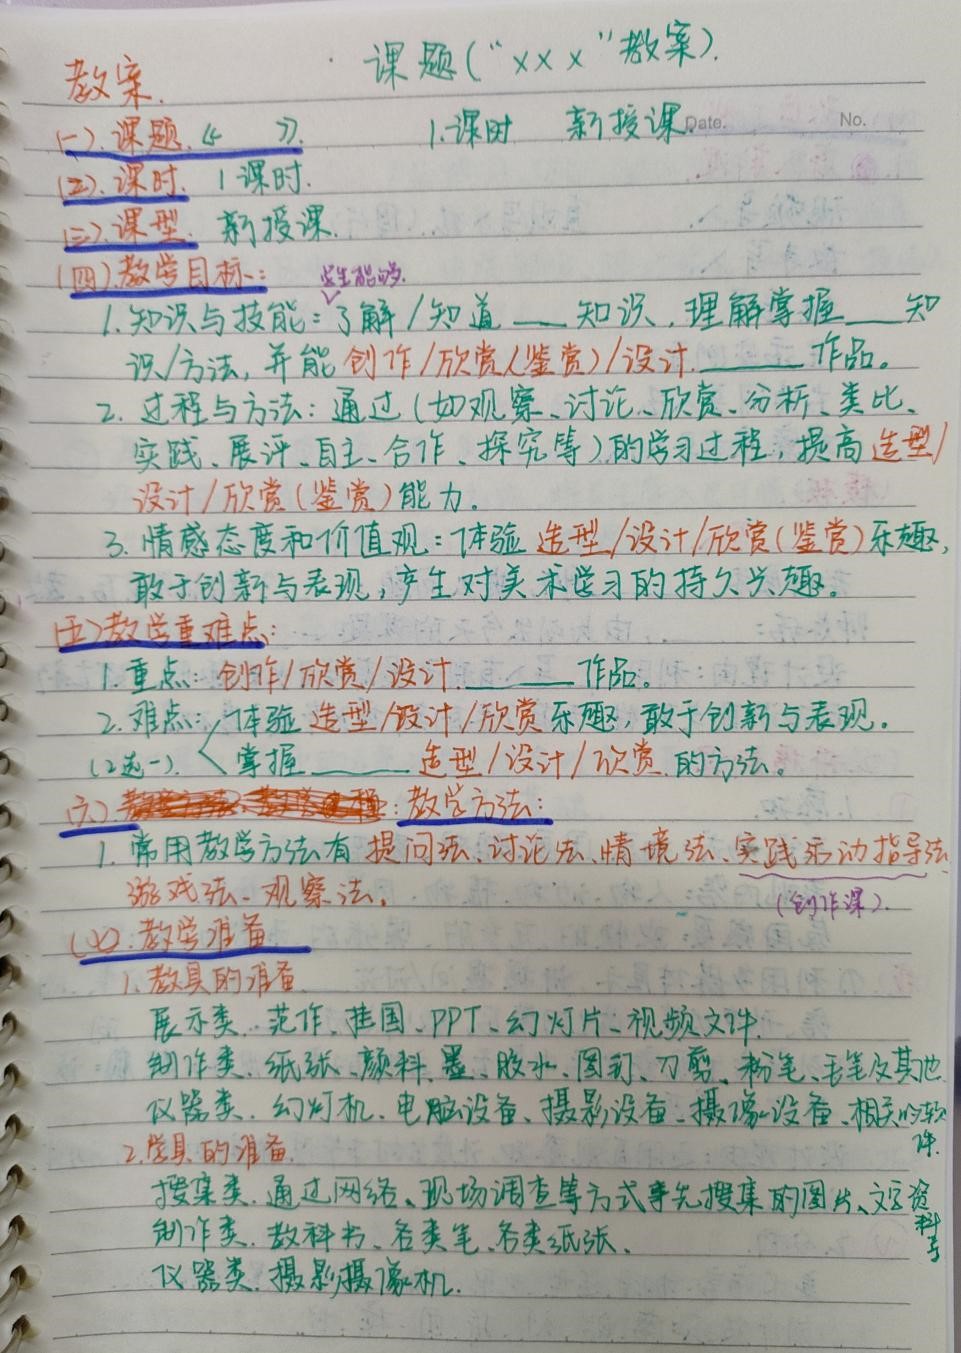 课题(“×××”教案).
教案.
(一).课题.《     》.     1.课时   新授课.
Date.   No.
(二).课时.  1课时.
(三).课型.  新授课.
(四).教学目标:
学生能够.
1.知识与技能:了解/知道 ___ 知识,理解掌握 ___ 知
识/方法,并能创作/欣赏(鉴赏)/设计._____ 作品。
2.过程与方法:通过(如观察、讨论、欣赏、分析、类比、
实践、展评、自主、合作、探究等)的学习过程,提高造型/
设计/欣赏(鉴赏)能力.
3.情感态度和价值观:体验造型/设计/欣赏(鉴赏)乐趣,
敢于创新与表现,产生对美术学习的持久兴趣。
(五)教学重难点:
1.重点:创作/欣赏/设计._____ 作品。
2.难点:体验造型/设计/欣赏乐趣,敢于创新与表现。
(2选一). 掌握_____ 造型/设计/欣赏.的方法。
(六) : 教学方法:
1.常用教学方法有提问法、讨论法、情境法、实践示动指导法
游戏法、观察法。
(创作课).
(七).教学准备
1.教具的准备
展示类.范作、挂图、PPT、幻灯片、视频文件.
制作类.纸张、颜料、墨、胶水、图钉、刀剪、粉笔、毛笔及其他.
仪器类.幻灯机、电脑设备、摄影设备、摄像设备、相关的软
件.
2.学具的准备.
搜集类.通过网络、现场调查等方式事先搜集的图片、文字资
料等
制作类.教科书、各类笔、各类纸张、
仪器类.摄影摄像机.